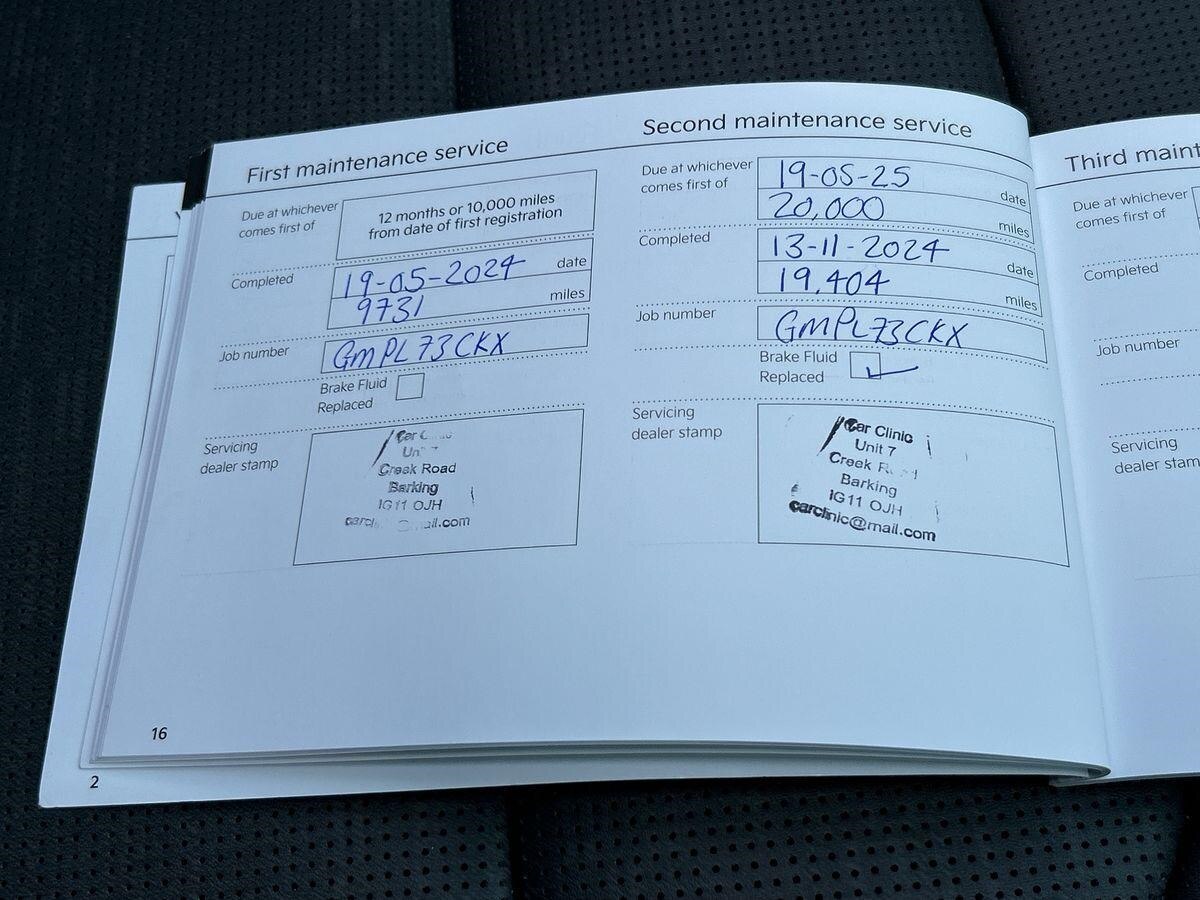 First maintenance service
Due at whichever
comes first of
12 months or 10,000 miles
from date of first registration
Completed
19-05-2024 date
9731 miles
Job number
GMPL73CKX
Brake Fluid
Replaced
Servicing
dealer stamp
Car
Creek Road
Barking
IG11 OJH
16
2
Second maintenance service
Due at whichever
comes first of
19-05-25 date
20,000 miles
Completed
13-11-2024 date
19,404 miles
Job number
GMPL73CKX
Brake Fluid
Replaced
Servicing
dealer stamp
Car Clinic
Unit 7
Creek
Barking
IG11 OJH
carclinic@mail.com
Third
Due at whichever
comes first of
Completed
Job number
Servicing
dealer